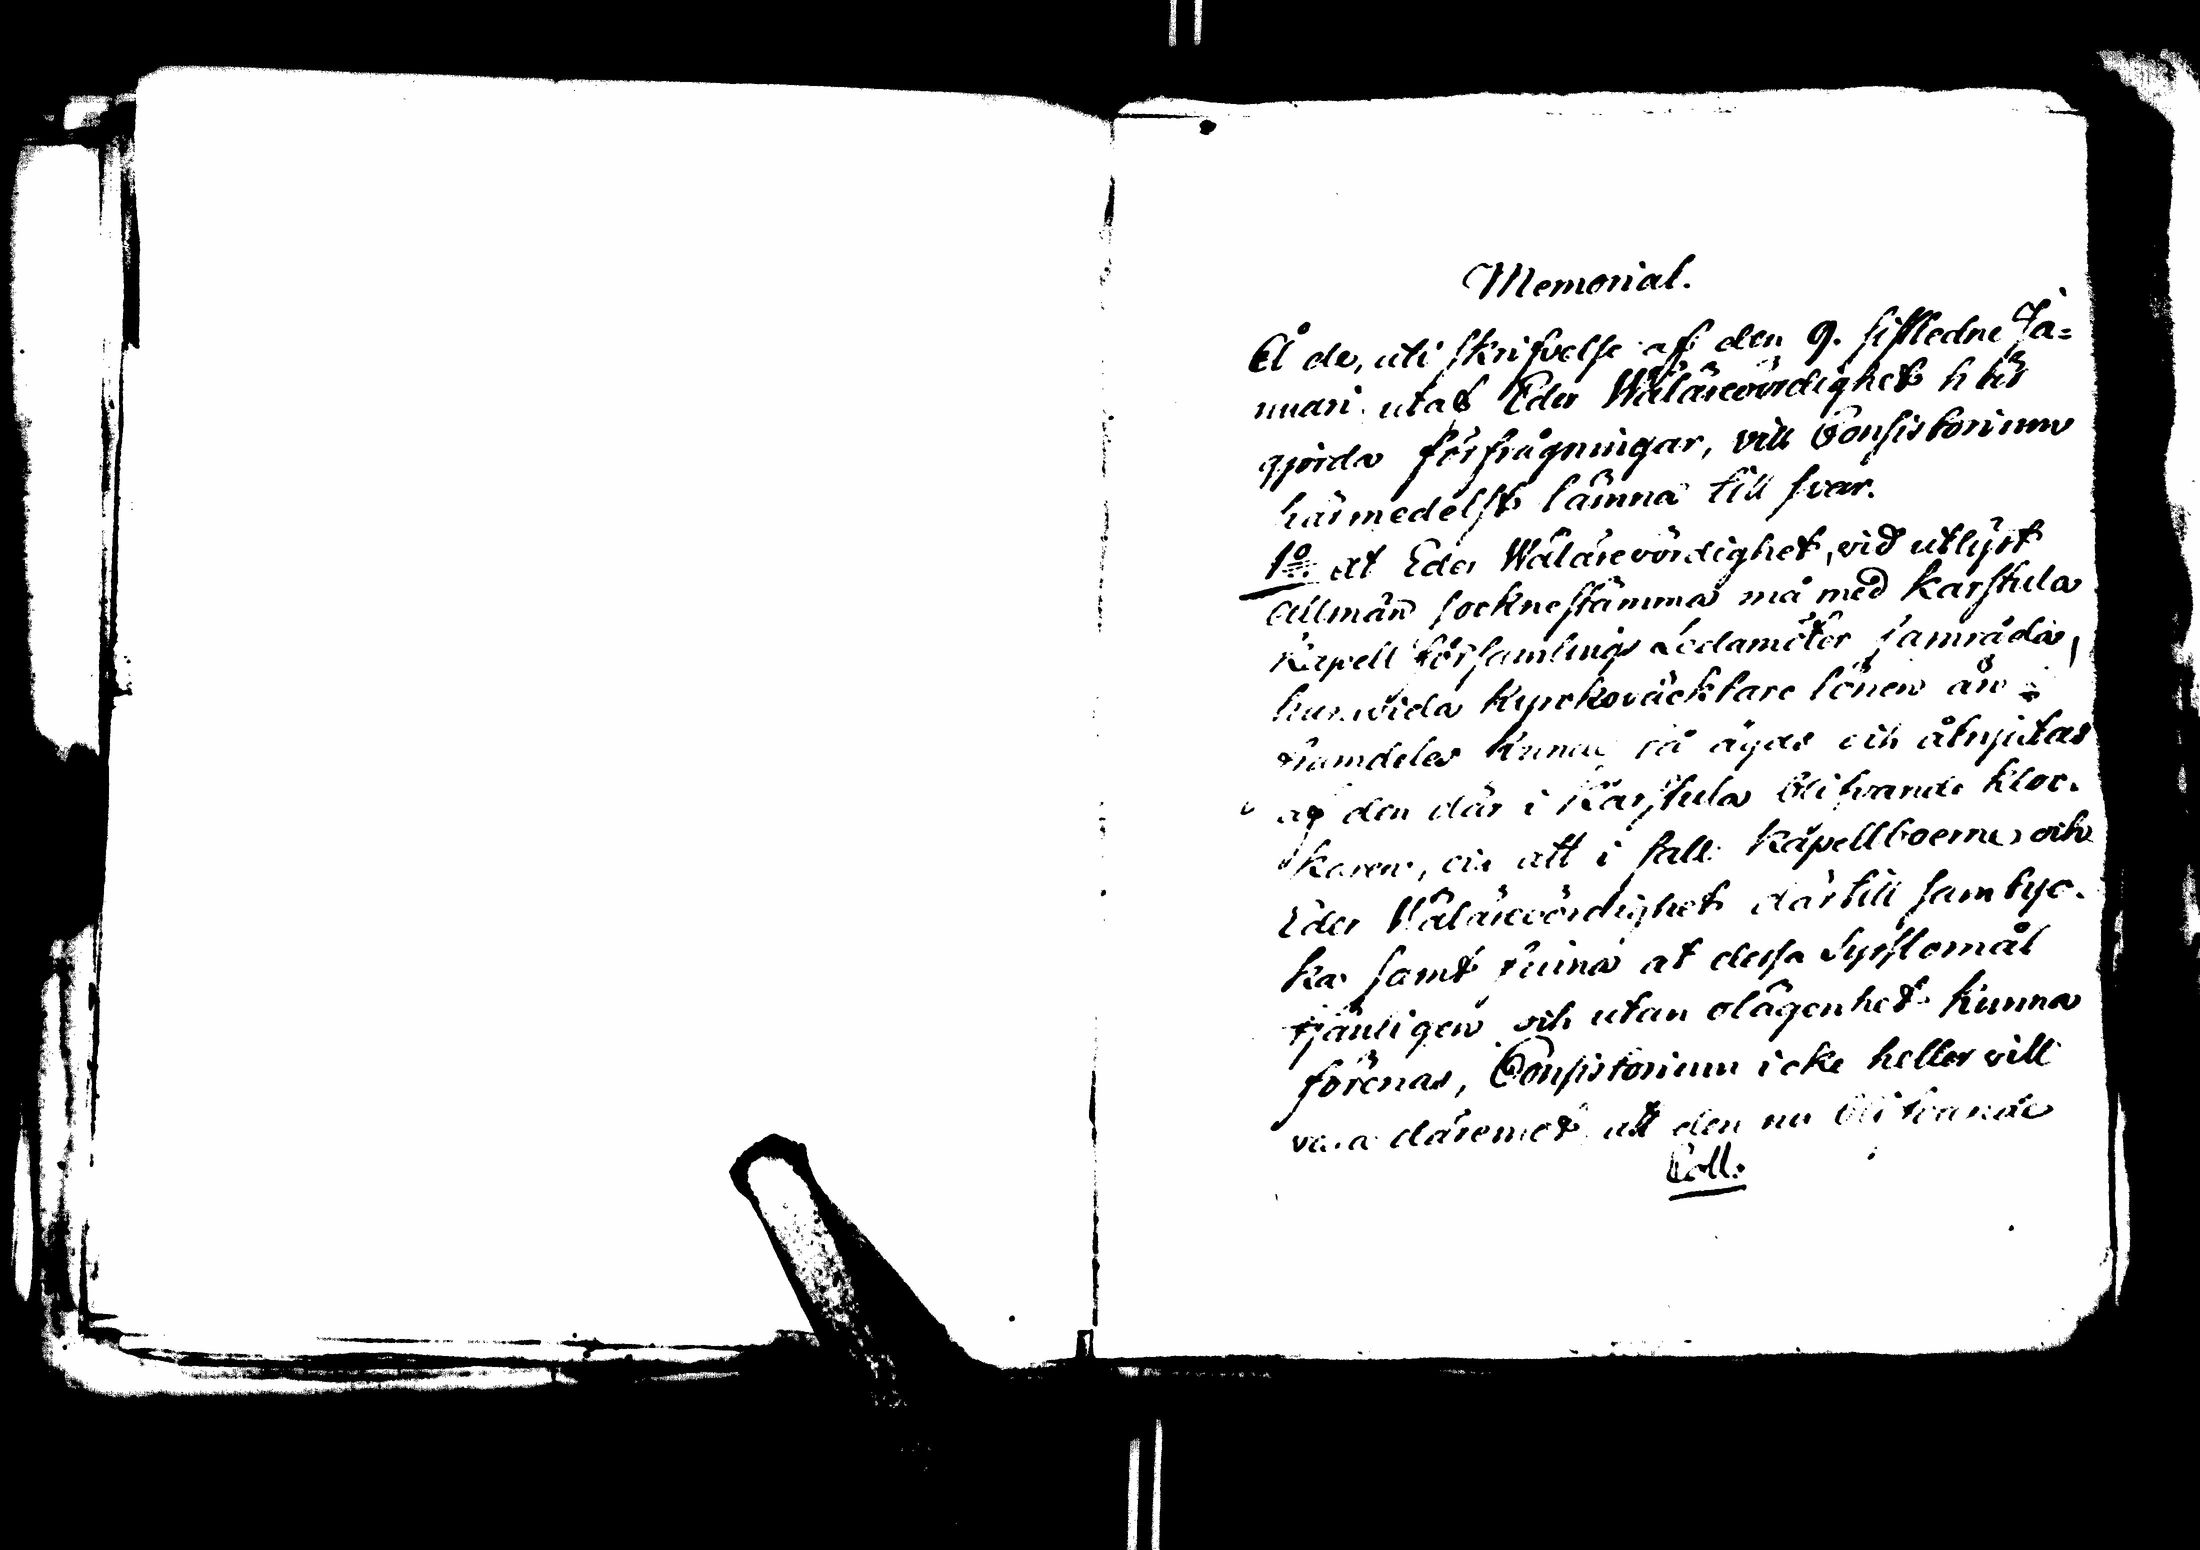 Memorial.
Å de, uti skrifvelse af den 9. sistledne Ja=
nuari utaf Eder Wälärevördighet här
gjorda förfrågningar, vill Consistorium
härmedelst lämna till svar.
1o. at Eder Wälärevördighet, vid utlyst
allmän socknestämma må med Karstula
Kapell församlings Ledamöter samråda,
huruvida kyrkoväcktare lönen än
framdeles kunna så ägas och åtnjutas
af den där i Karstula blifvande kloc-
karen, och att i fall Kapellboerne, och
Eder Wälärevördighet därtill samtyc-
ka samt finna at dessa Sysslomål
tjänligen och utan olägenhet kunna
förenas, Consistorium icke heller vill
vara däremot att den nu blifvande
Coll: